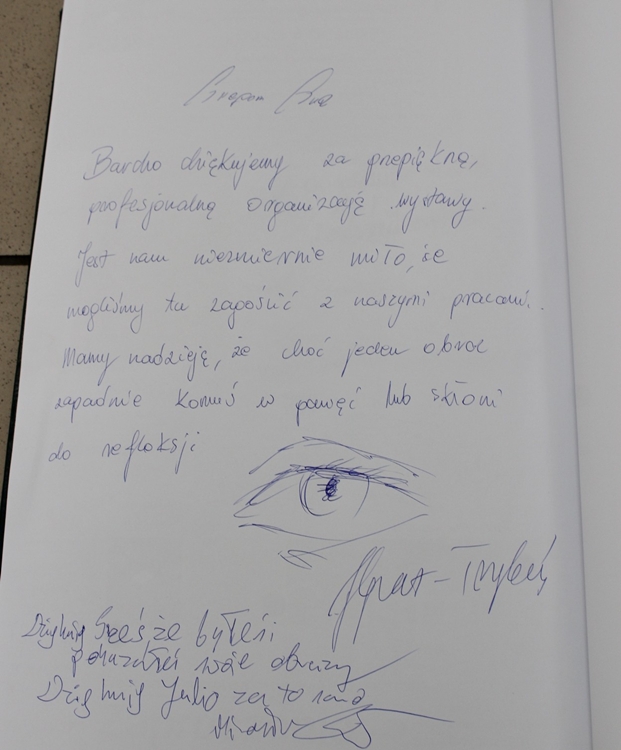 Bardzo dziękujemy za przepiękną,
profesjonalną organizację wystawy.
Jest nam niezmiernie miło, że
mogliśmy tu zagościć z naszymi pracami.
Mamy nadzieję, że choć jeden obraz
zapadnie komuś w pamięć lub skłoni
do refleksji
Dziękuję że byłeś i
pokazałeś swoje obrazy
Dziękuję Julio za to